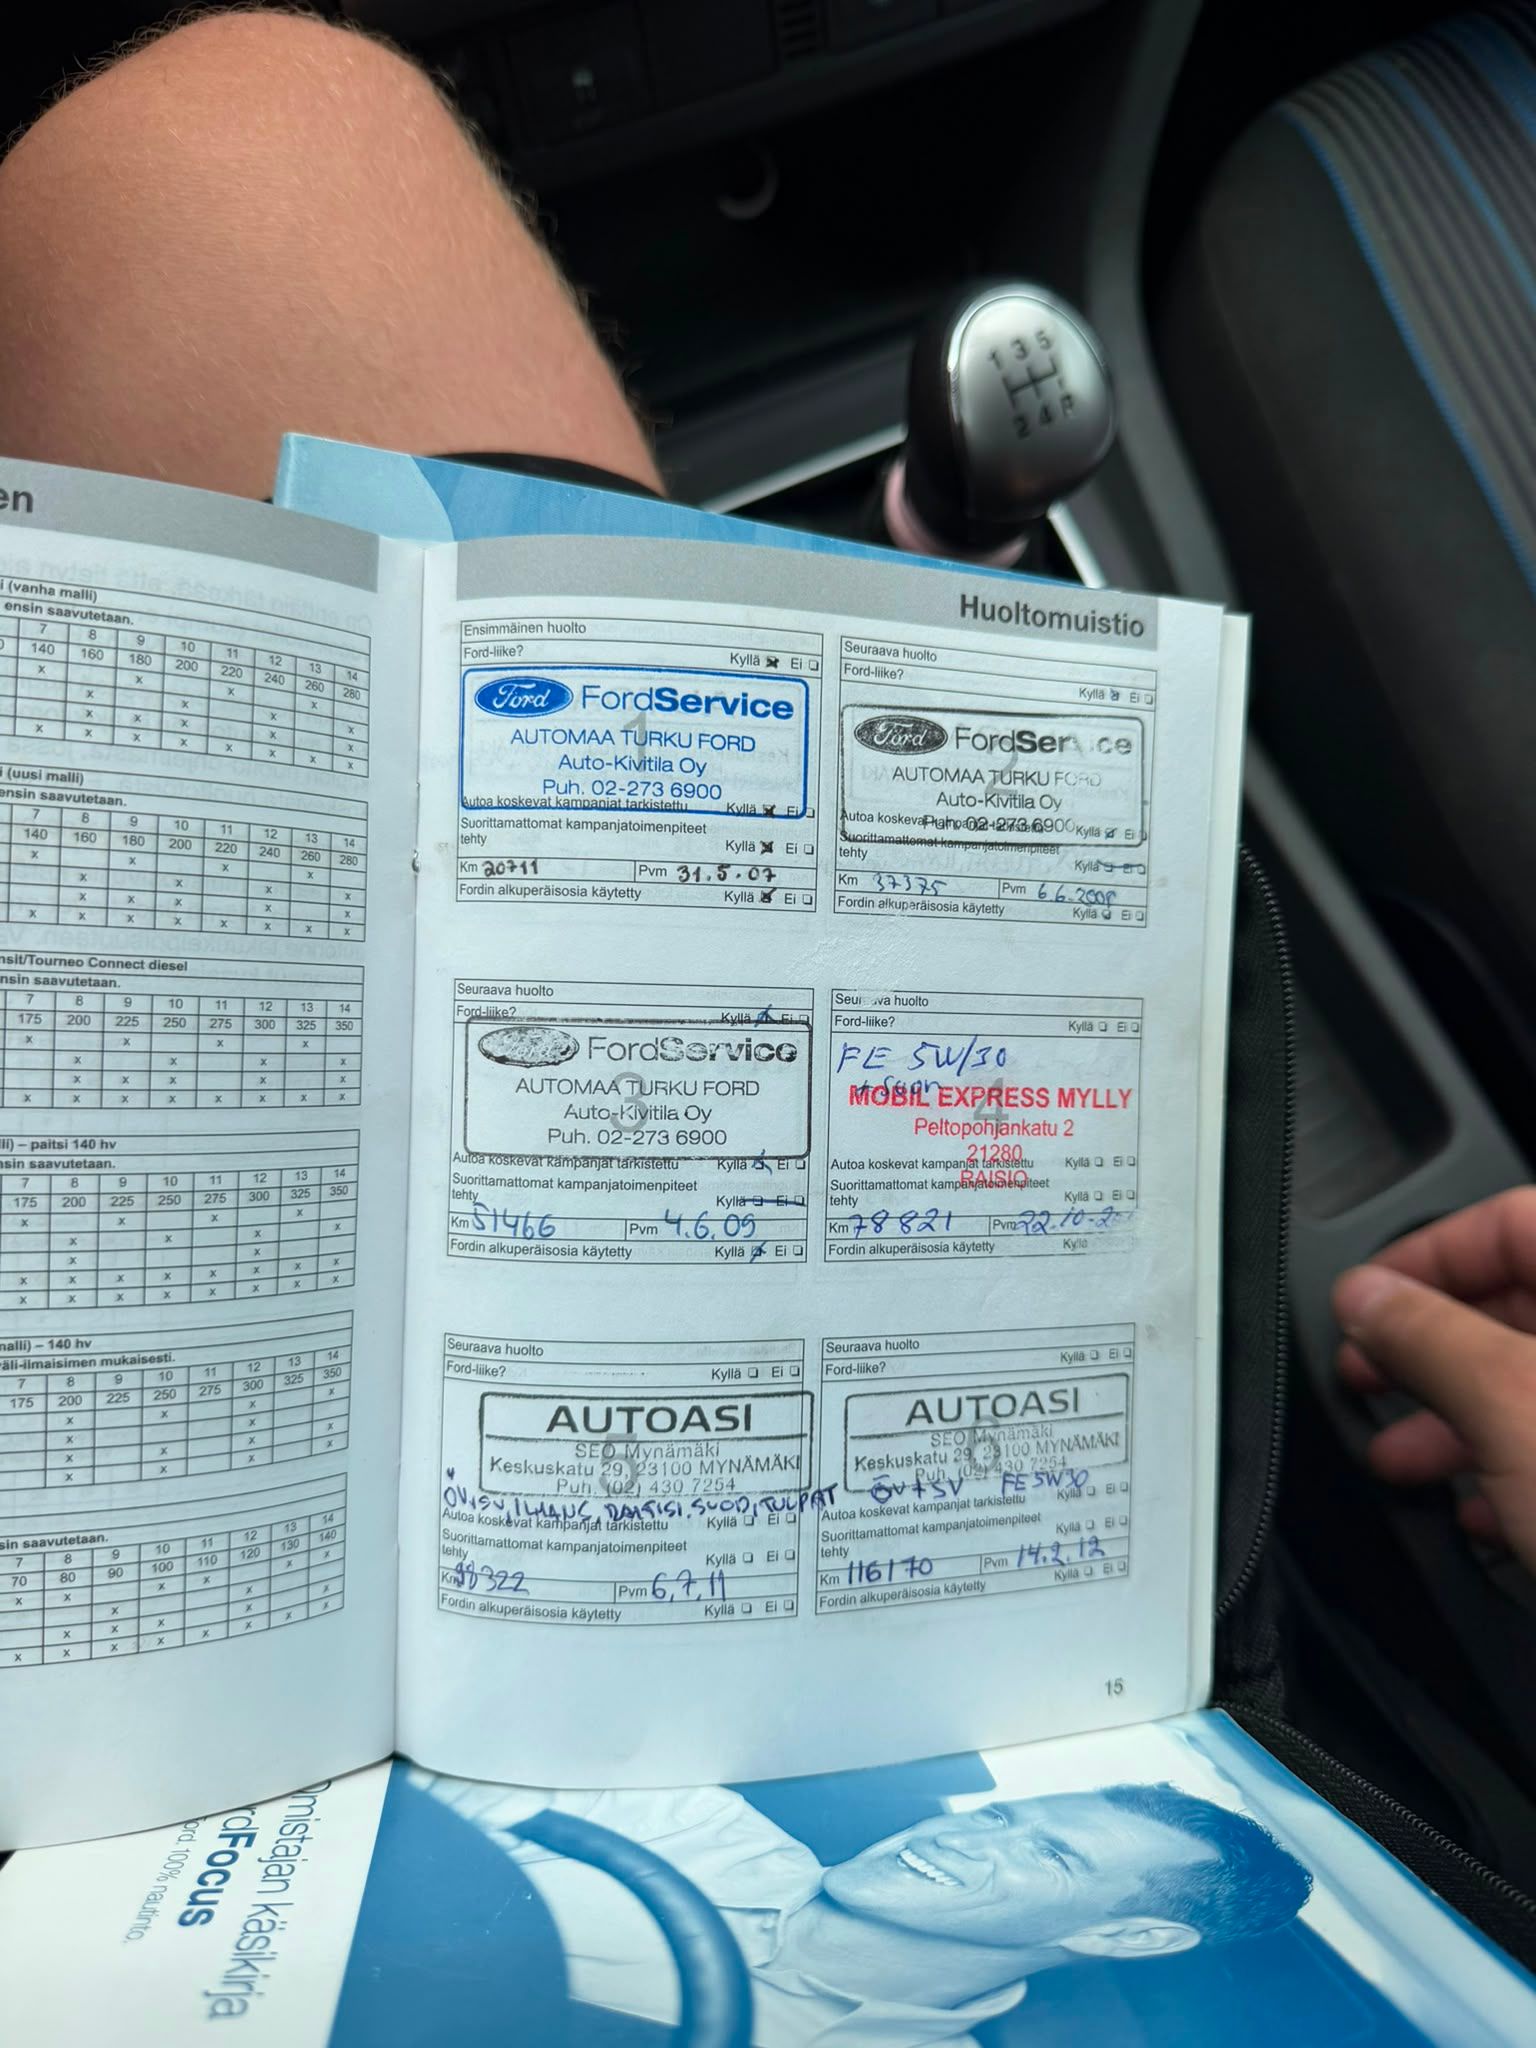 1 3 5
2 4 R
en
i (vanha malli)
ensin saavutetaan.
7 8 9 10 11 12 13 14
140 160 180 200 220 240 260 280
x x x x
x x x x
x x x x
x x x x x x x x
i (uusi malli)
ensin saavutetaan.
7 8 9 10 11 12 13 14
140 160 180 200 220 240 260 280
nsit/Tourneo Connect diesel
nsin saavutetaan.
7 8 9 10 11 12 13 14
175 200 225 250 275 300 325 350
lli) – paitsi 140 hv
nsin saavutetaan.
7 8 9 10 11 12 13 14
175 200 225 250 275 300 325 350
malli) – 140 hv
väli-ilmaisimen mukaisesti.
7 8 9 10 11 12 13 14
175 200 225 250 275 300 325 350
sin saavutetaan.
7 8 9 10 11 12 13 14
70 80 90 100 110 120 130 140
Huoltomuistio
Ensimmäinen huolto
Ford-liike?
Kyllä Ei
Ford FordService
1
AUTOMAA TURKU FORD
Auto-Kivitila Oy
Puh. 02-273 6900
Autoa koskevat kampanjat tarkistettu Kyllä Ei
Suorittamattomat kampanjatoimenpiteet
tehty Kyllä Ei
Km 20711 Pvm 31.5.07
Fordin alkuperäisosia käytetty Kyllä Ei
Seuraava huolto
Ford-liike?
Kyllä Ei
Ford FordService
2
AUTOMAA TURKU FORD
Auto-Kivitila Oy
Puh. 02-273 6900
Autoa koskevat kampanjat tarkistettu Kyllä Ei
Suorittamattomat kampanjatoimenpiteet
tehty Kyllä Ei
Km 37375 Pvm 6.6.2008
Fordin alkuperäisosia käytetty Kyllä Ei
Seuraava huolto
Ford-liike? Kyllä Ei
FordService
3
AUTOMAA TURKU FORD
Auto-Kivitila Oy
Puh. 02-273 6900
Autoa koskevat kampanjat tarkistettu Kyllä Ei
Suorittamattomat kampanjatoimenpiteet
tehty Kyllä Ei
Km 51466 Pvm 4.6.09
Fordin alkuperäisosia käytetty Kyllä Ei
Seuraava huolto
Ford-liike? Kyllä Ei
FE 5W/30
4
MOBIL EXPRESS MYLLY
Peltopohjankatu 2
21280
RAISIO
Autoa koskevat kampanjat tarkistettu Kyllä Ei
Suorittamattomat kampanjatoimenpiteet
tehty Kyllä Ei
Km 78821 Pvm 22.10-
Fordin alkuperäisosia käytetty Kyllä
Seuraava huolto
Ford-liike? Kyllä Ei
AUTOASI
5
SEO Mynämäki
Keskuskatu 29, 23100 MYNÄMÄKI
Puh. (02) 430 7254
ÖV, SV, ILMANS, RAITISI.SUOD, TULPAT
Autoa koskevat kampanjat tarkistettu Kyllä Ei
Suorittamattomat kampanjatoimenpiteet
tehty Kyllä Ei
Km 98322 Pvm 6,7,11
Fordin alkuperäisosia käytetty Kyllä Ei
Seuraava huolto
Ford-liike? Kyllä Ei
AUTOASI
6
SEO Mynämäki
Keskuskatu 29, 23100 MYNÄMÄKI
Puh. (02) 430 7254
ÖV + SV FE 5W30
Autoa koskevat kampanjat tarkistettu Kyllä Ei
Suorittamattomat kampanjatoimenpiteet
tehty Kyllä Ei
Km 116170 Pvm 14.2.12
Fordin alkuperäisosia käytetty Kyllä Ei
15
Omistajan käsikirja
rdFocus
Ford. 100% nautinto.